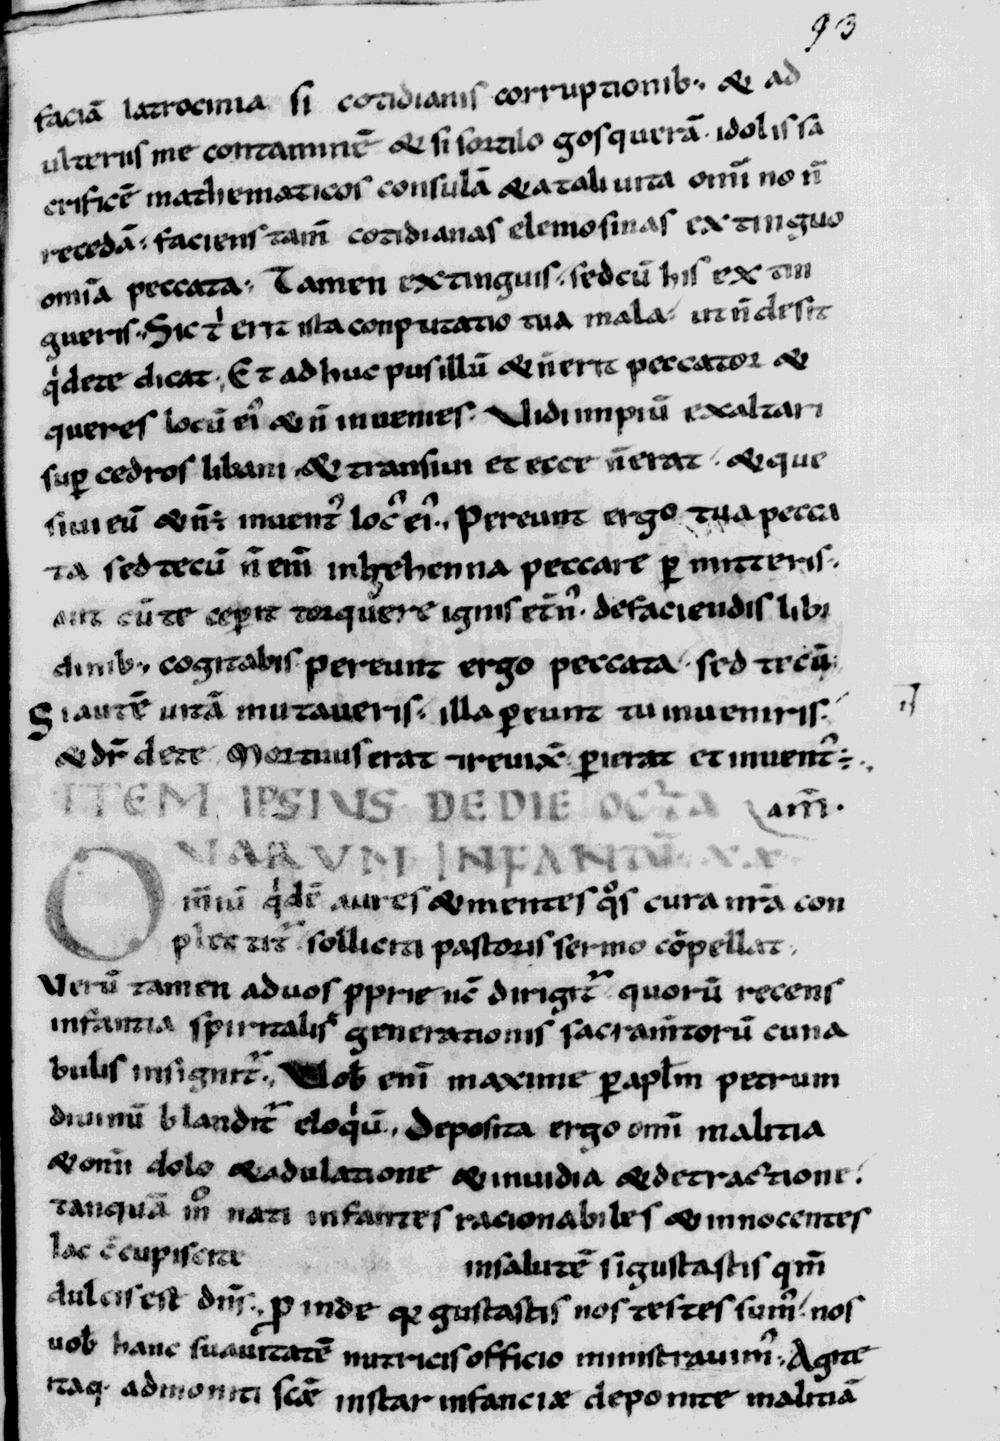 93
faciā latrocinia si cotidianis corruptionib; & ad
ulteriis me contaminē & si sortilogos querā idolis sa
crificē mathematicos consulā & a tali uita om̄i no n̄
recedā; faciens tam̄ cotidianas elemosinas extinguo
om̄ia peccata; Tamen extinguis. sed cū his extin
gueris. Sic t̄ erit ista conputatio tua mala. ut n̄ desit
q̇ de te dicat. Et adhuc pusillū & n̄ erit peccator &
queres locū ei' & n̄ inuenies. Vidi impiū exaltari
sup cedros libani. & transiui et ecce n̄ erat. & que
siui eū & n̄ ÷ inuent' loc' ei'. Pereunt ergo tua pecca
ta sed tecū n̄ eni̅ in gehenna peccare p mitteris.
aut cū te ceperit torquere ignis et̄n'. de faciendis libi
dinib; cogitabis. Pereunt ergo peccata. sed tecū;
Si autē uitā mutaueris. illa pereunt tu inueniris.
& dr̄ de te Mortuus erat & reuix̄. perierat et inuent' ÷.
ITEM IPSIUS DE DIE OCTA am̄.
VARUM INFANTŪ. XX.
Om̄iū q̇dē aures & mentes q°s cura nr̄a con
plectit' solliciti pastoris sermo cōpellat.
Verū tamen ad uos pprie nc̄ dirigit' quorū recens
infantia spiritalis generationis sacram̄torū cuna
bulis insignit'. Vob eni̅ maxime p apl̄m petrum
diuinū blandit' eloq̇ū. Deposita ergo om̄i malitia
& om̄i dolo & adulatione & inuidia & detractione.
tanquā m° nati infantes racionabiles & innocentes
lac c̄cupiscite in salutē si gustastis qm̄
dulcis est dn̄s. p inde q; gustastis nos testes sum'. nos
uob hanc suauitatē nutricis officio ministrauim'. Agite
itaq; admoniti scāe instar infanciæ deponite malitiā